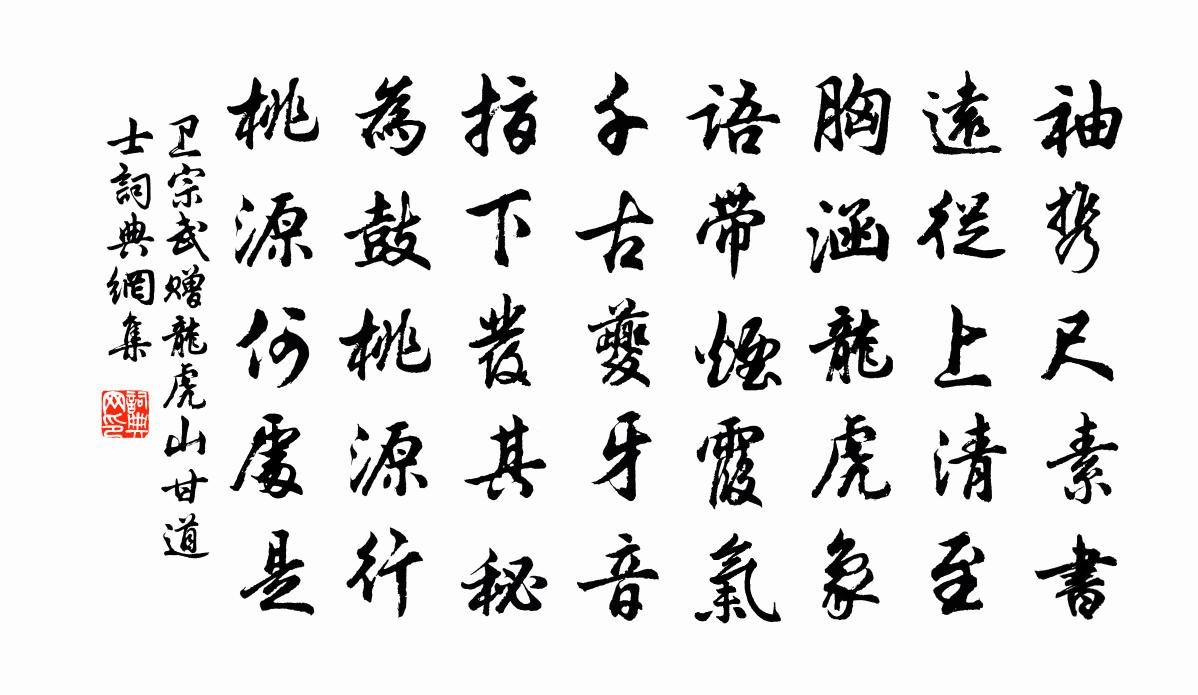 袖携尺素書
遠從上清至
胸涵龍虎象
語帶煙霞氣
千古夔牙音
指下發其秘
為鼓桃源行
桃源何處是
卫宗武赠龍虎山甘道
士詞典網集
詞典网印